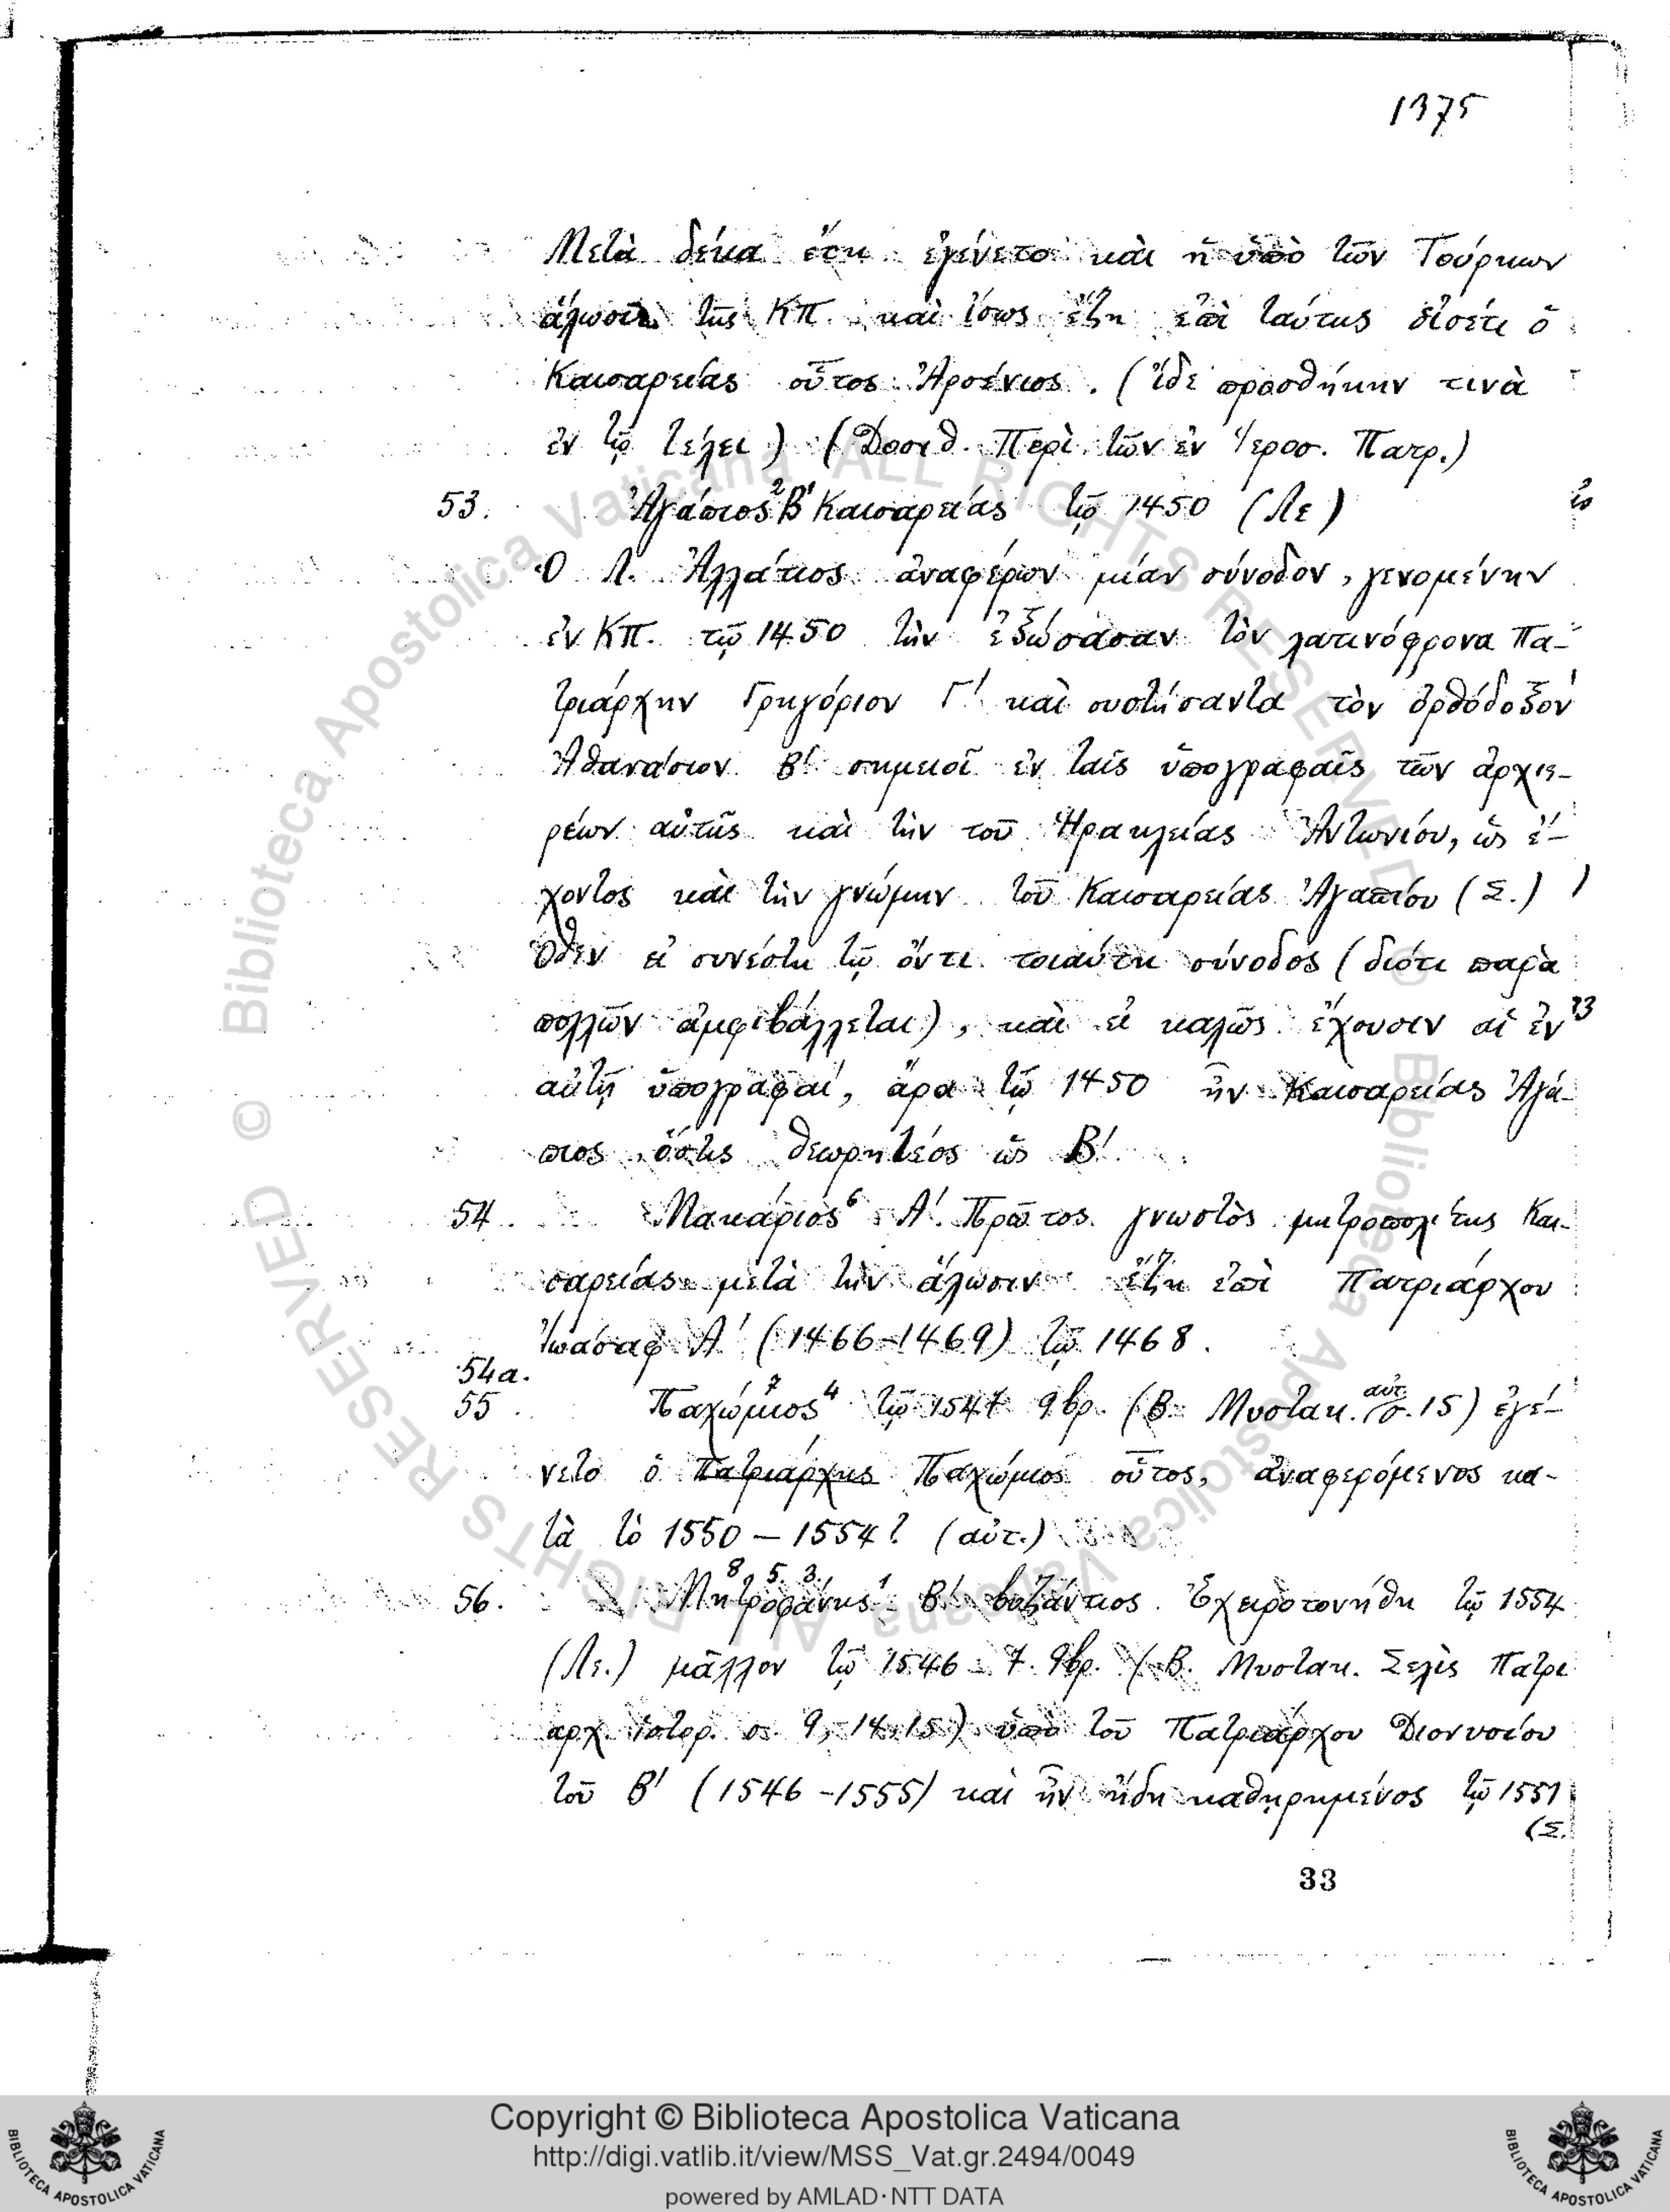 1375
Μετὰ δέκα ἔτη ἐγένετο καὶ ἡ ὑπὸ τῶν Τούρκων
ἅλωσις τῆς ΚΠ. καὶ ἴσως ἔζη ἐπὶ ταύτης εἰσέτι ὁ
Καισαρείας οὗτος Ἀρσένιος. (ἴδε προσθήκην τινὰ
ἐν τῷ τέλει) (Δοσιθ. Περὶ τῶν ἐν Ἱεροσ. Πατρ.)
53. Ἀγάπιος² Β' Καισαρείας τῷ 1450 (Λε)
Ὁ Λ. Ἀλλάτιος ἀναφέρων μίαν σύνοδον, γενομένην
ἐν ΚΠ. τῷ 1450 τὴν ἐξώσασαν τὸν λατινόφρονα Πα-
τριάρχην Γρηγόριον Γ' καὶ συστήσαντα τὸν ὀρθόδοξον
Ἀθανάσιον Β' σημειοῖ ἐν ταῖς ὑπογραφαῖς τῶν ἀρχιε-
ρέων αὐτῆς καὶ τὴν τοῦ Ἡρακλείας Ἀντωνίου, ὡς ἔ-
χοντος καὶ τὴν γνώμην τοῦ Καισαρείας Ἀγαπίου (Σ.)
Ὅθεν εἰ συνέστη τῷ ὄντι τοιαύτη σύνοδος (διότι παρὰ
πολλῶν ἀμφιβάλλεται), καὶ εἰ καλῶς ἔχουσιν αἱ ἐν
αὐτῇ ὑπογραφαί, ἄρα τῷ 1450 ἦν Καισαρείας Ἀγά-
πιος ὅστις θεωρητέος ὡς Β'.
54. Μακάριος⁶ Α'. Πρῶτος γνωστὸς μητροπολίτης Και-
σαρείας μετὰ τὴν ἅλωσιν ἔζη ἐπὶ Πατριάρχου
Ἰωάσαφ Α' (1466-1469) τῷ 1468.
54α.
55. Παχώμιος⁴ τῷ 1547 9βρ. (Β. Μυστακ. αὐτ. σ. 15) ἐγέ-
νετο ὁ Πατριάρχης Παχώμιος οὗτος, ἀναφερόμενος κα-
τὰ τὸ 1550 - 1554? (αὐτ.)
56. Μητροφάνης¹ Β' βυζάντιος. Ἐχειροτονήθη τῷ 1554
(Λε.) μᾶλλον τῷ 1546 - 7. 9βρ. (Β. Μυστακ. Σελὶς Πατρι
αρχ. ἱστορ. σ. 9, 14, 15) ὑπὸ τοῦ Πατριάρχου Διονυσίου
τοῦ Β' (1546 - 1555) καὶ ἦν ἤδη καθῃρημένος τῷ 1551
(Σ.
33
© Biblioteca Apostolica Vaticana ALL RIGHTS RESERVED
© Biblioteca Apostolica Vaticana ALL RIGHTS RESERVED
Copyright © Biblioteca Apostolica Vaticana
http://digi.vatlib.it/view/MSS_Vat.gr.2494/0049
powered by AMLAD·NTT DATA
BIBLIOTECA APOSTOLICA VATICANA
BIBLIOTECA APOSTOLICA VATICANA